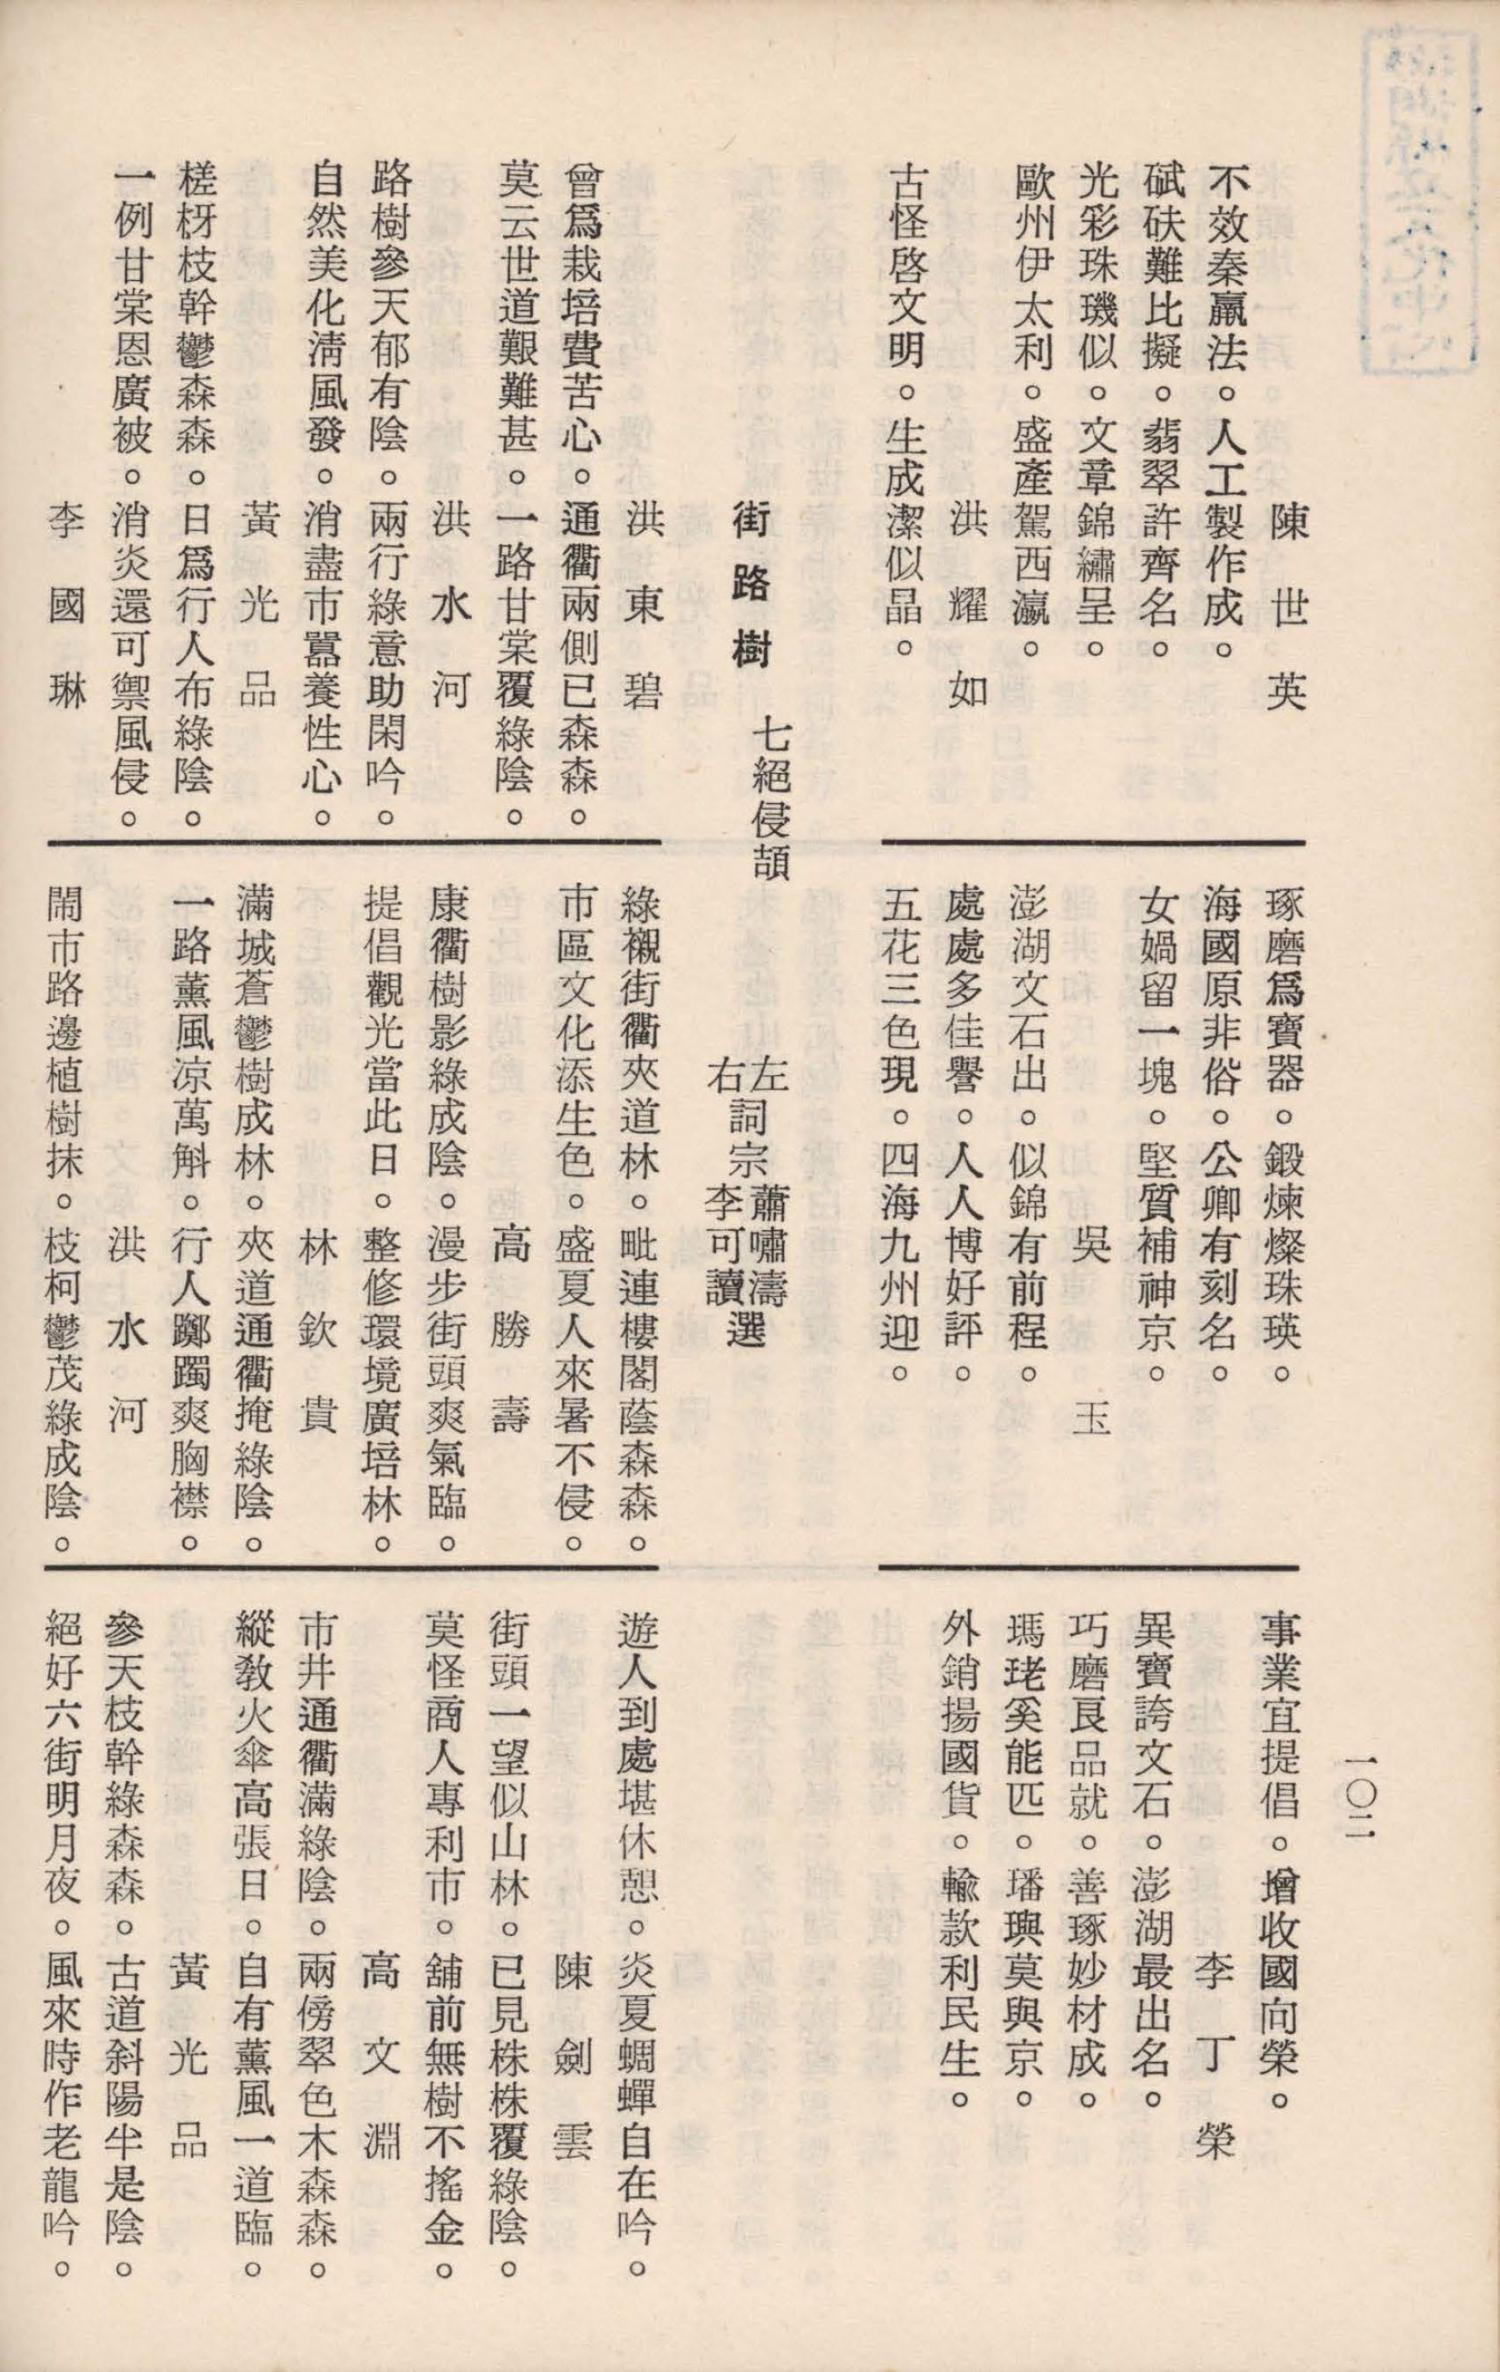 一〇二
陳世英
不效秦羸法。人工製作成。
碔砆難比擬。翡翠許齊名。
光彩珠璣似。文章錦繡呈。
歐州伊太利。盛產駕西瀛。
洪耀如
古怪啓文明。生成潔似品。
琢磨爲寶器。鍛煉燦珠瑛。
海國原非俗。公卿有刻名。
女媧留一塊。堅質補神京。
吳玉
澎湖文石出。似錦有前程。
處處多佳譽。人人博好評。
五花三色現。四海九州迎。
事業宜提倡。增收國向榮。
李丁榮
異寶誇文石。澎湖最出名。
巧磨良品就。善琢妙材成。
瑪珯奚能匹。璠璵莫與京。
外銷揚國貨。輸款利民生。
街路樹 七絕侵頡
左詞宗蕭嘯濤選
右詞宗李可讀選
洪東碧
曾爲栽培費苦心。通衢兩側已森森。
莫云世道艱難甚。一路甘棠覆綠陰。
洪水河
路樹參天郁有陰。兩行綠意助閑吟。
自然美化淸風發。消盡市囂養性心。
黃光品
槎枒枝幹鬱森森。日爲行人布綠陰。
一例甘棠恩廣被。消炎還可禦風侵。
李國琳
綠襯街衢夾道林。毗連樓閣蔭森森。
市區文化添生色。盛夏人來暑不侵。
高勝壽
康衢樹影綠成陰。漫步街頭爽氣臨。
提倡觀光當此日。整修環境廣培林。
林欽貴
滿城蒼鬱樹成林。夾道通衢掩綠陰。
一路薰風涼萬斛。行人躑躅爽胸襟。
洪水河
鬧市路邊植樹抹。枝柯鬱茂綠成陰。
遊人到處堪休憩。炎夏蜩蟬自在吟。
陳劍雲
街頭一望似山林。已見株株覆綠陰。
莫怪商人專利市。舖前無樹不搖金。
高文淵
市井通衢滿綠陰。兩傍翠色木森森。
縱敎火傘高張日。自有薰風一道臨。
黃光品
參天枝幹綠森森。古道斜陽半是陰。
絕好六街明月夜。風來時作老龍吟。